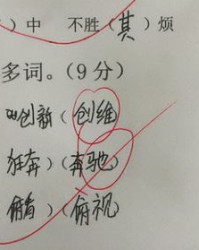 ）中 不胜（其）烦
多词。（9分）
创新（创维）
狂奔）（奔驰）
俯首）（俯视